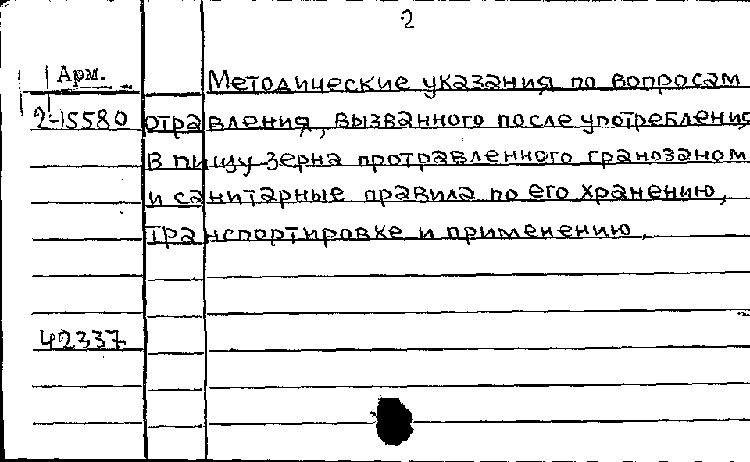 2
Арм. Методические указания по вопросам
2-15580 отравления, вызванного после употребления
в пищу зерна протравленного гранозаном
и санитарные правила по его хранению,
транспортировке и применению.
42337